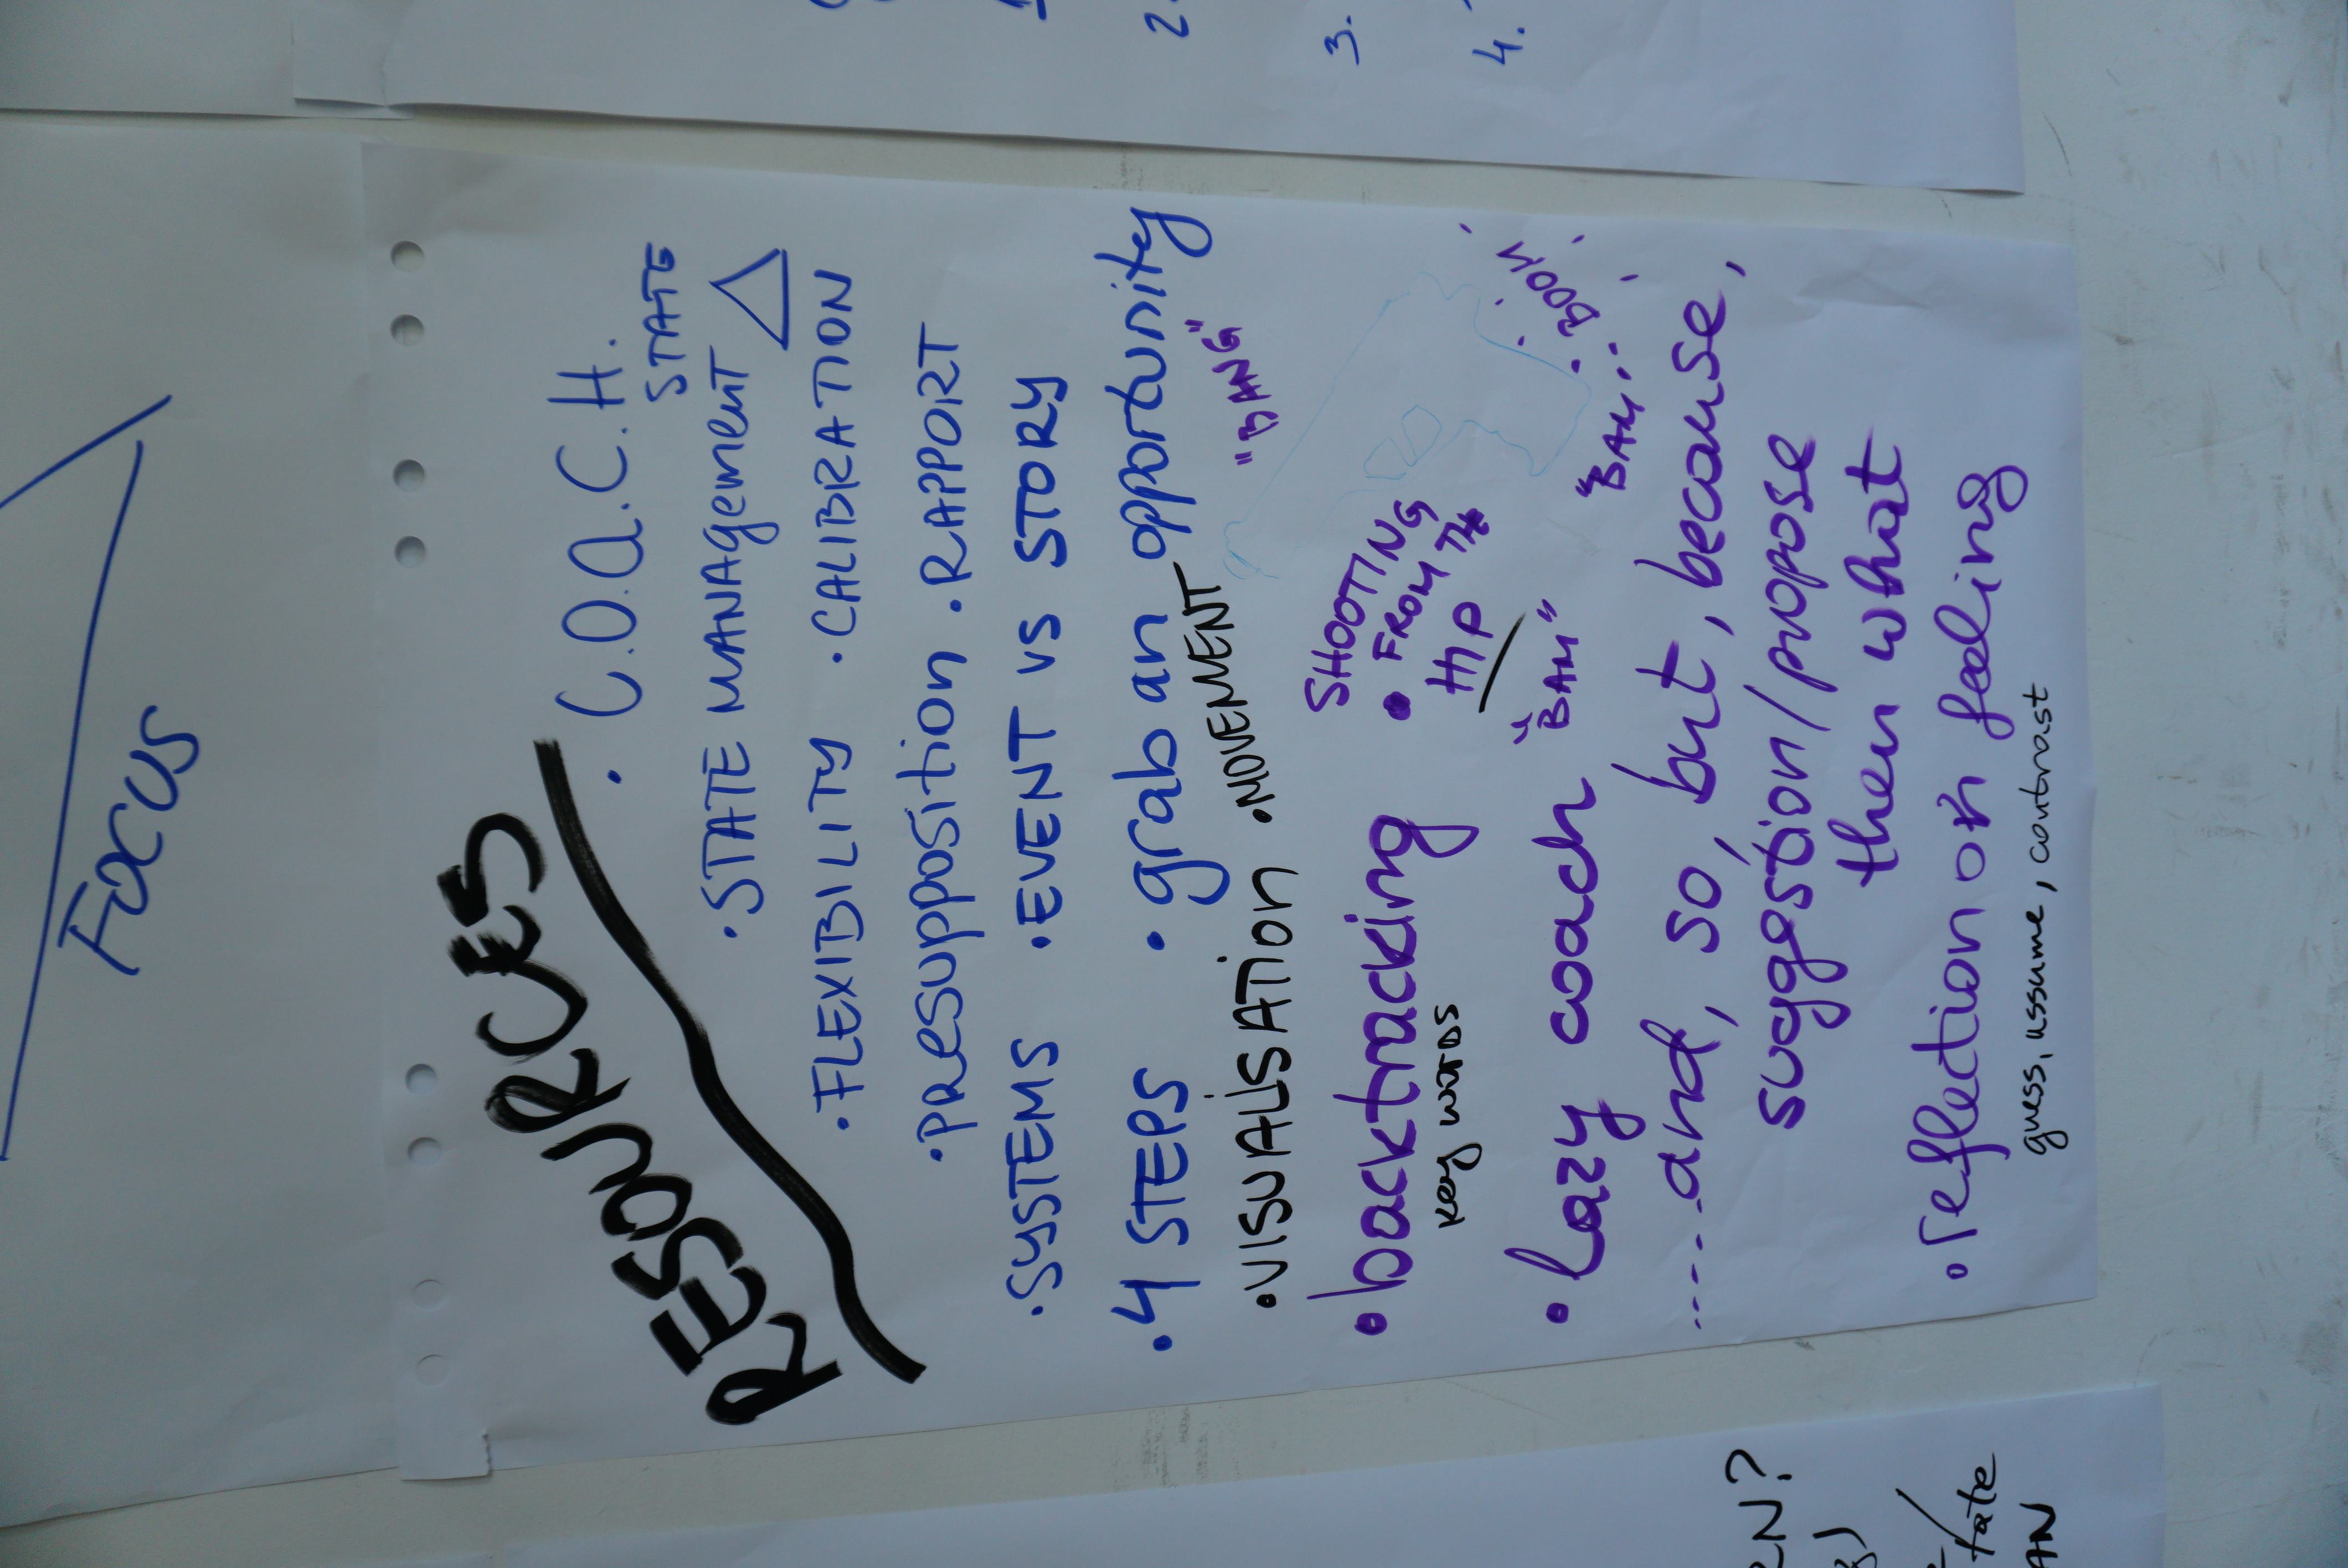 Focus
RESOURCES
• C.O.a.C.H.
STATE
• STATE MANAgement
• FLEXIBILITY • CALIBRATION
• PResupposition • RAPPORT
• SYSTEMS • EVENT vs STORY
• 4 STEPS • grab an opportunity
• VISUALISATION • MOVEMENT
"BANG"
• backtracking
key words
SHOOTING
• FROM THE
HIP
"BAM"
"BAM"
BOOM
• lazy coach
----- and, so, but, because,
suggestion/propose
then what
• reflection on feeling
guess, assume, contrast
2.
3.
4.